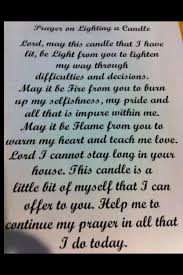 Prayer on Lighting a Candle
Lord, may this candle that I have
lit, be Light from you to lighten
my way through
difficulties and decisions.
May it be Fire from you to burn
up my selfishness, my pride and
all that is impure within me.
May it be Flame from you to
warm my heart and teach me love.
Lord I cannot stay long in your
house. This candle is a
little bit of myself that I can
offer to you. Help me to
continue my prayer in all that
I do today.